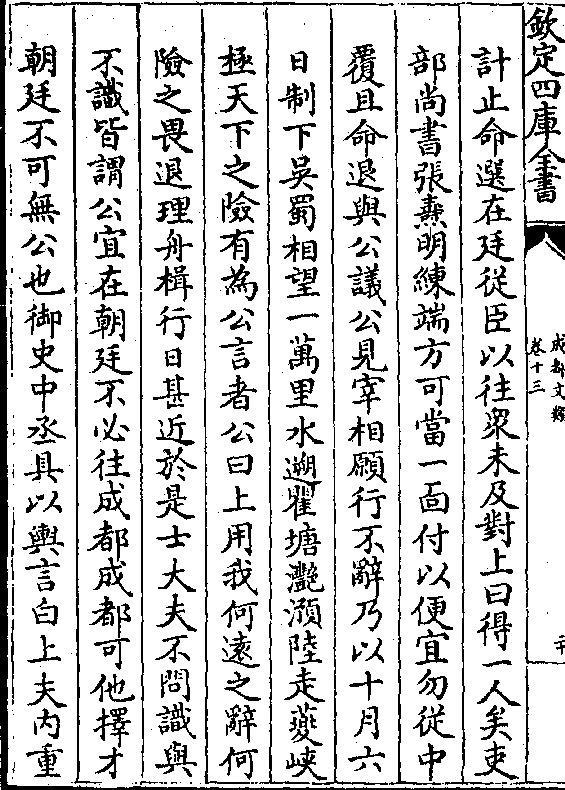 欽定四庫全書
成都文類
卷十三
二十
計止命選在廷從臣以往衆未及對上曰得一人矣吏
部尚書張燾明練端方可當一面付以便宜勿從中
覆且命退與公議公見宰相願行不辭乃以十月六
日制下吳蜀相望一萬里水遡瞿塘灩澦陸走夔峽
極天下之險有為公言者公曰上用我何遠之辭何
險之畏退理舟楫行日甚近於是士大夫不問識與
不識皆謂公宜在朝廷不必往成都成都可他擇才
朝廷不可無公也御史中丞具以輿言白上夫内重